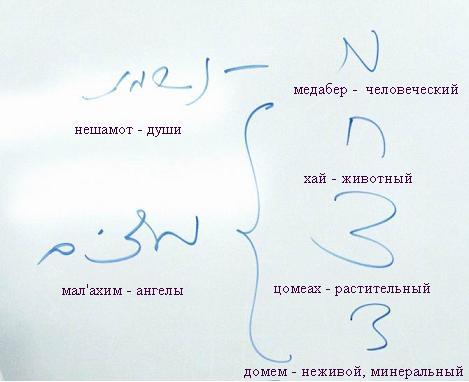 נשמות — מ
медабер - человеческий
нешамот - души
ח
хай - животный
צ
מלאכים
мал'ахим - ангелы
цомеах - растительный
ד
домем - неживой, минеральный